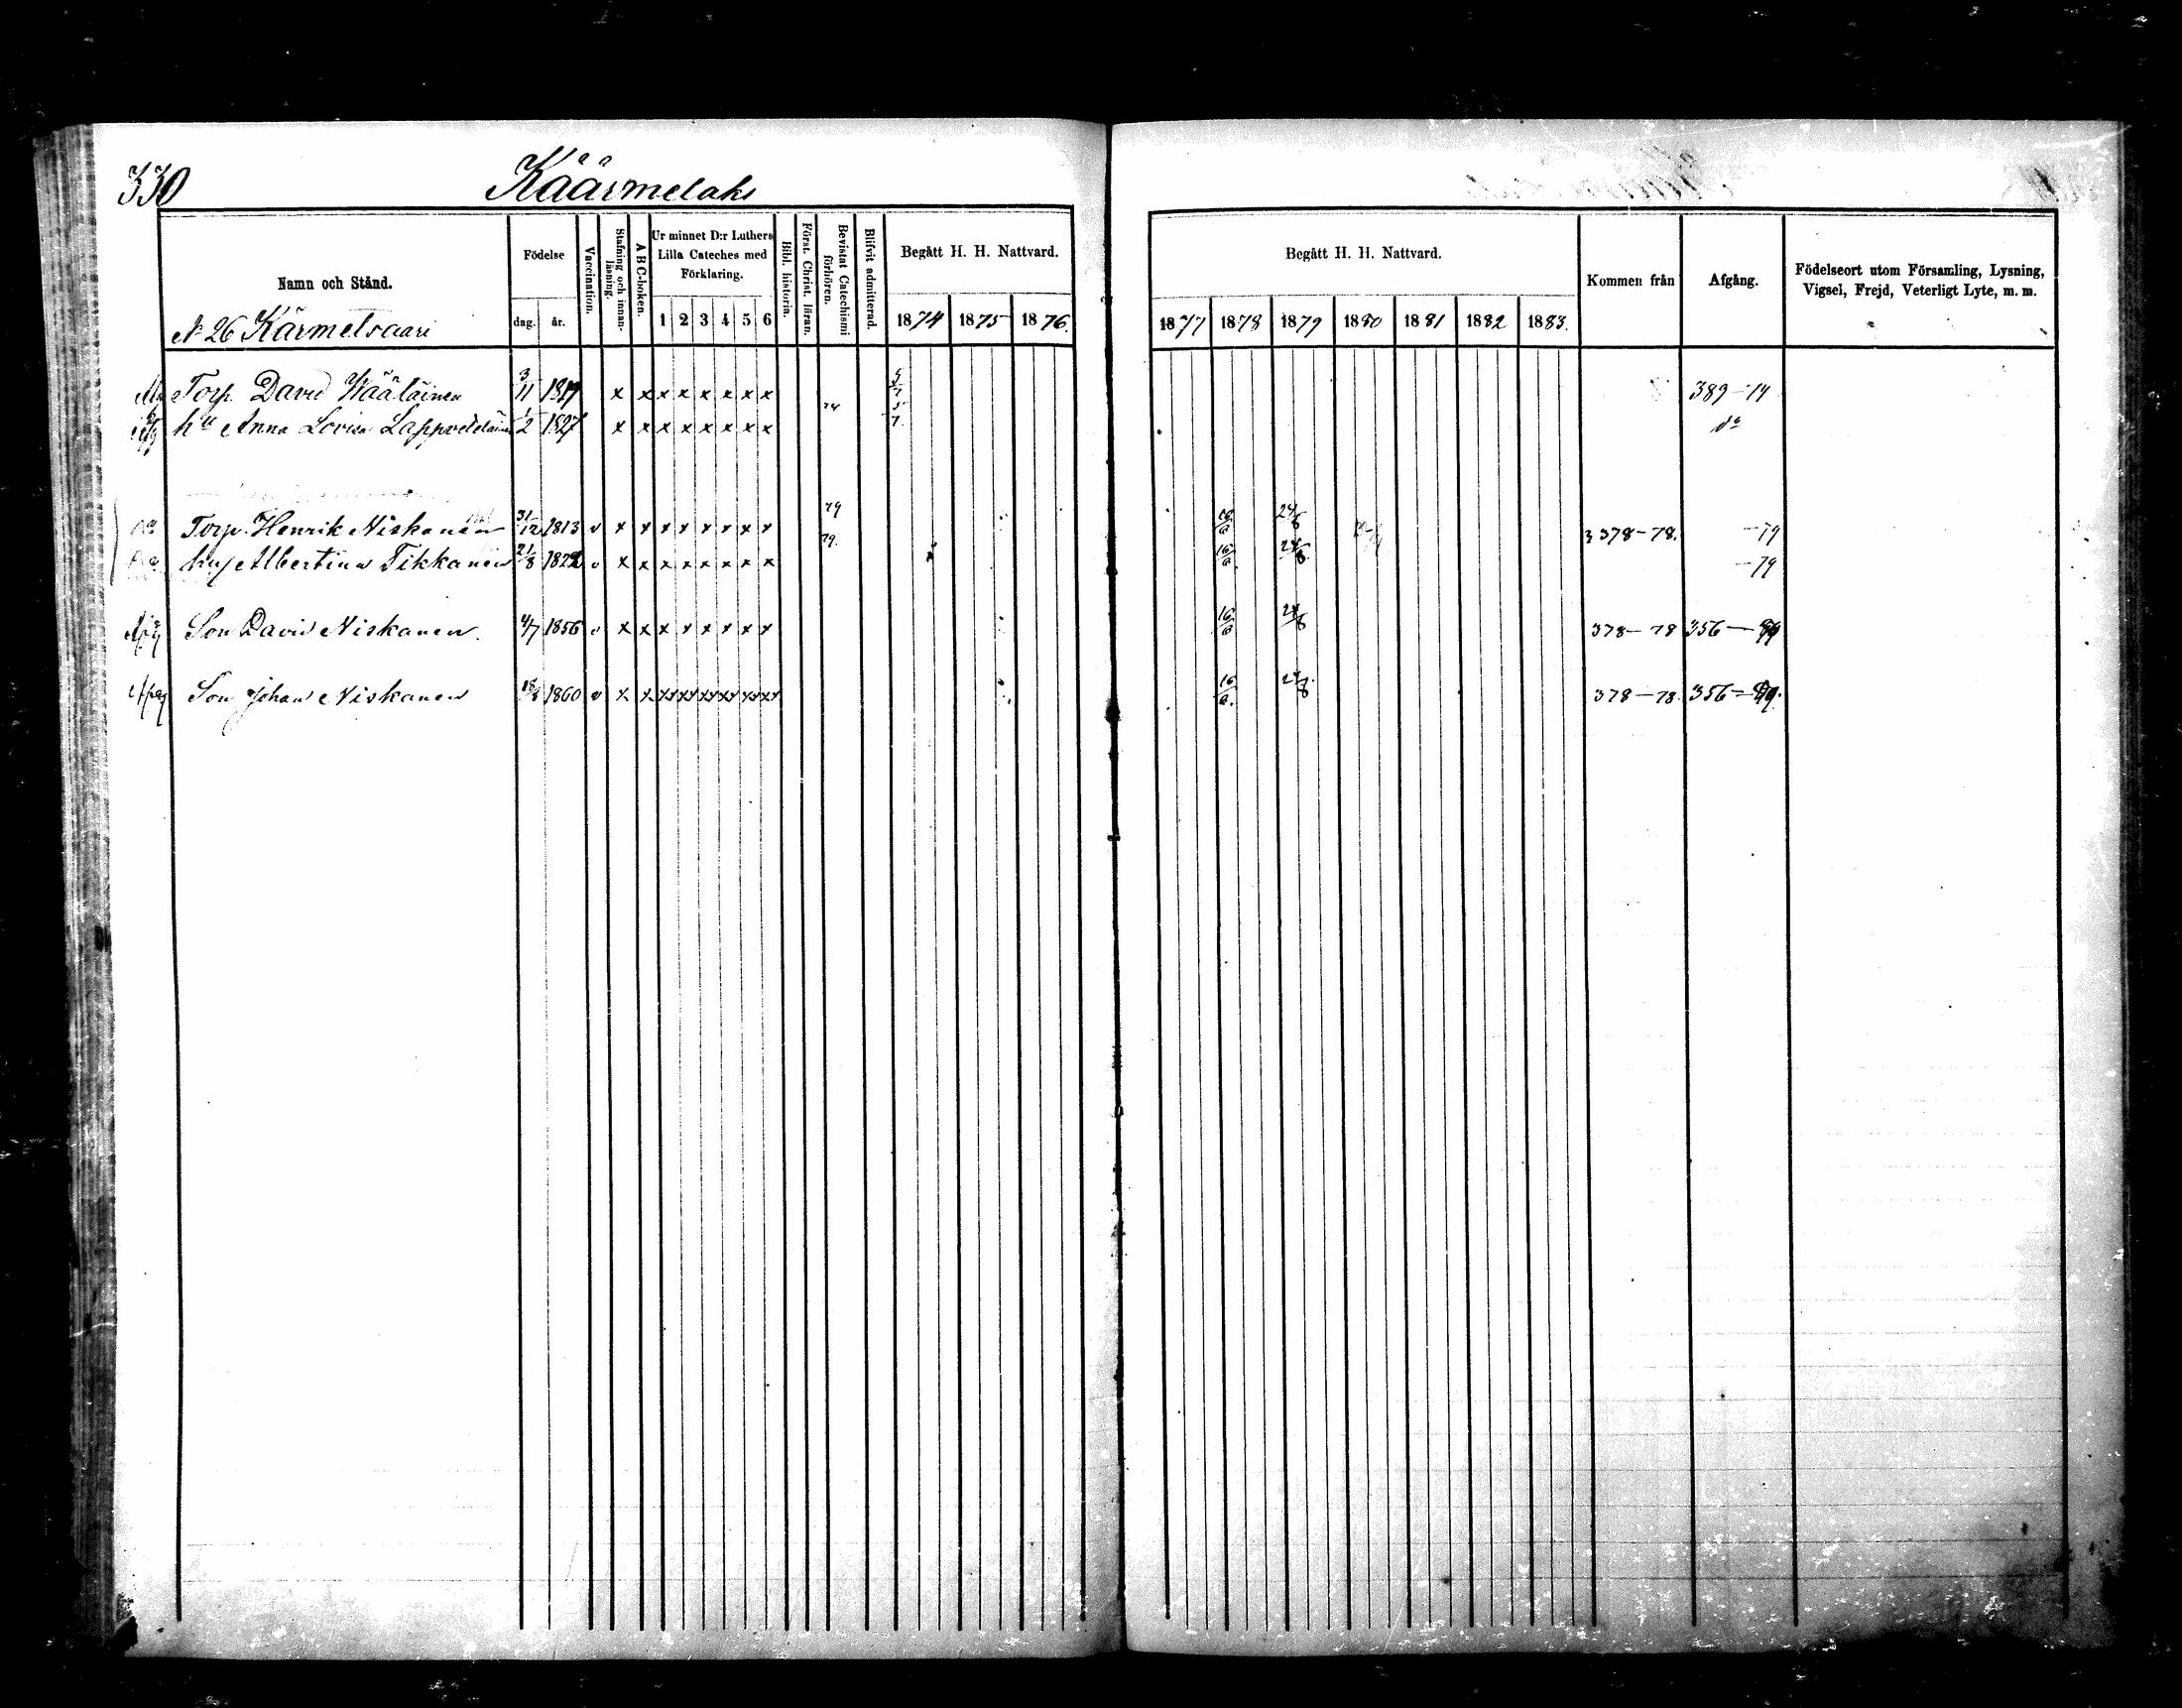 330 Käärmelaks
Namn och Stånd. Födelse dag. år. Vaccination. Stafning och innanläsning. A B C-boken. Ur minnet D:r Luthers Lilla Cateches med Förklaring. 1 2 3 4 5 6 Bibl. historia. Först. Christ. läran. Bevistat Catechismi förhören. Blifvit admitterad. Begått H. H. Nattvard. 1874 1875 1876.
Begått H. H. Nattvard. 1877 1878 1879 1880 1881 1882 1883. Kommen från Afgång. Födelseort utom Församling, Lysning, Vigsel, Frejd, Veterligt Lyte, m. m.
N 26 Kärmelsaari
Torp. David Wäätäinen 3/11 1819 x x x x x x x x 5/7 389-74
hu Anna Lovisa 1/2 1827 x x x x x x x x 74 5/7 do
Torp. Henrik Niskanen 31/12 1813 v x x x x x x x x 79 16/6 24/8 378-78. -79
hu Albertina Tikkanen 21/8 1822 v x x x x x x x x 79. 16/6 24/8 -79
Son David Niskanen. 4/7 1856 v x x x x x x x x 16/6 24/8 378-78 356-79
Son Johan Niskanen 1860 v x x xx xx xx xx xx xx 16/6. 24/8 378-78. 356-79.